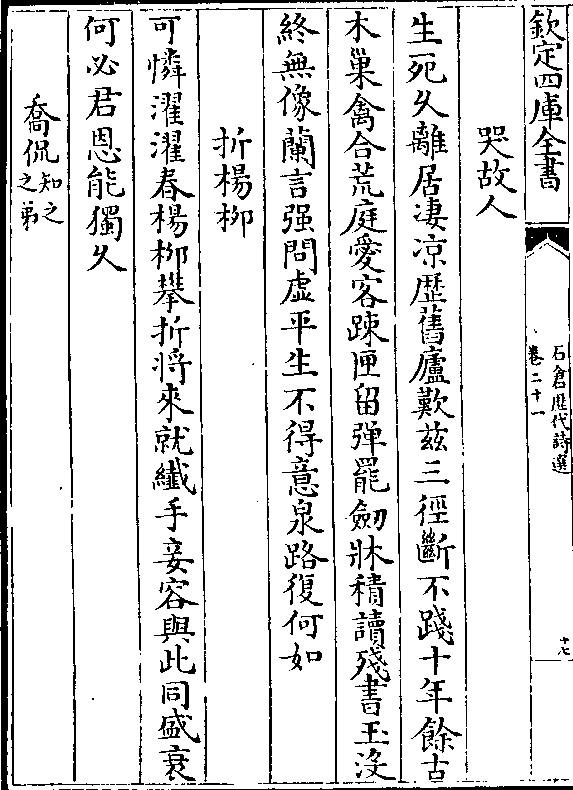 欽定四庫全書
石倉歷代詩選
卷二十一
十七
哭故人
生死久離居淒凉歴舊廬歎兹三徑斷不踐十年餘古
木巢禽合荒庭愛客踈匣留彈罷劒牀積讀殘書玉没
終無像蘭言强問虚平生不得意泉路復何如
折楊栁
可憐濯濯春楊栁攀折將來就纖手妾容與此同盛衰
何必君恩能獨久
喬侃知之
之弟